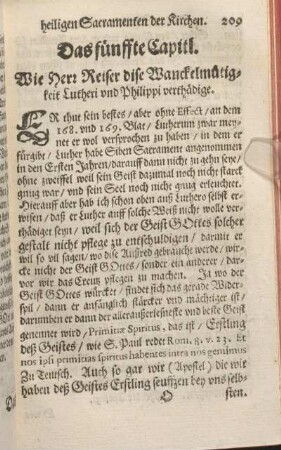 heiligen Sacramenten der Kirchen. 209
Das fünffte Capitl.
Wie Herr Reiser dise Wanckelmütig-
keit Lutheri vnd Philippi verthädige.
ER thut sein bestes / aber ohne Effect / an dem
168. vnd 169. Blat / Lutherum zwar mey-
net er wol versprochen zu haben / in dem er
fürgibt / Luther habe Siben Sacrament angenommen
in den Ersten Jahren / darauff dann nicht zu gehn seye /
ohne zweiffel weil sein Geist dazumal noch nicht starck
gnug war / vnd sein Seel noch nicht gnug erleuchtet.
Hierauff aber hab ich schon oben auß Luthero selbst er-
wisen / daß er Luther auff solche Weiß nicht wolle ver-
thädiget seyn / weil sich der Geist GOttes solcher
gestalt nicht pflege zu entschuldigen / darmit er
wil so vil sagen / wo dise Außred gebraucht werde / wür-
cke nicht der Geist GOttes / sonder ein anderer / dar-
vor wir das Creutz pflegen zu machen. Ja wo der
Geist GOttes würcket / findet sich das gerade Wider-
spil / dann er anfänglich stärcker vnd mächtiger ist /
darumben er dann der allerausserleßneste vnd beste Geist
genennet wird / Primitiæ Spiritus, das ist / Erstling
deß Geistes / wie S. Paul redet Rom. 8. v. 23. Et
nos ipsi primitias spiritus habentes intra nos gemimus
Zu Teutsch. Auch so gar wir (Apostel) die wir
haben deß Geistes Erstling seufftzen bey vns selb-
O sten.